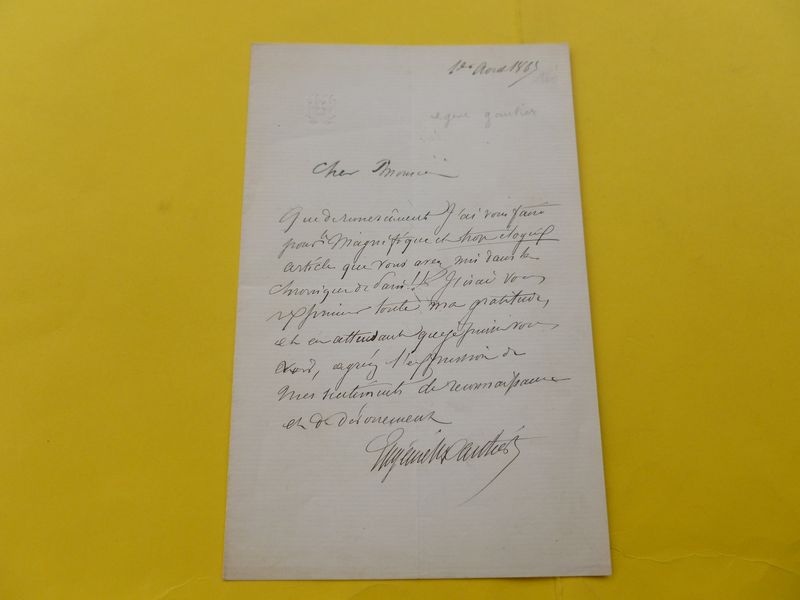 1er Avril 1865
gautier
Cher Monsieur
Que de remerciement J'ai à vous faire
pour le Magnifique et trop élogieux
article que vous avez mis dans la
chronique de Paris!! J'irai vous
exprimer toute ma gratitude,
et en attendant que je puisse vous
agréez l'expression de
mes sentiments de reconnaissance
et de dévouement
Eugène Gautier